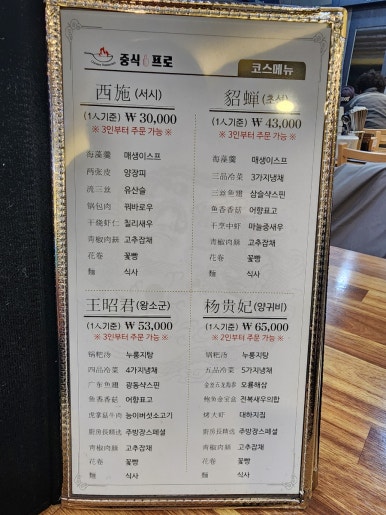 중식 프로
코스메뉴
西施 (서시)
(1人기준) ₩ 30,000
※ 3인부터 주문 가능 ※
海藻羹 매생이스프
两张皮 양장피
流三丝 유산슬
锅包肉 꿔바로우
干烧虾仁 칠리새우
青椒肉絲 고추잡채
花卷 꽃빵
麵 식사
貂蝉 (초선)
(1人기준) ₩ 43,000
※ 3인부터 주문 가능 ※
海藻羹 매생이스프
三品冷菜 3가지냉채
三丝鱼翅 삼슬샥스핀
鱼香香菇 어향표고
干烹中虾 마늘중새우
青椒肉絲 고추잡채
花卷 꽃빵
麵 식사
王昭君 (왕소군)
(1人기준) ₩ 53,000
※ 3인부터 주문 가능 ※
锅粑汤 누룽지탕
四品冷菜 4가지냉채
广东鱼翅 광동샥스핀
鱼香香菇 어향표고
虎掌菇牛肉 능이버섯소고기
廚房長精选 주방장스페셜
青椒肉絲 고추잡채
花卷 꽃빵
麵 식사
杨贵妃 (양귀비)
(1人기준) ₩ 65,000
※ 2인부터 주문 가능 ※
锅粑汤 누룽지탕
五品冷菜 5가지냉채
오룡해삼
전복새우의합
烤大虾 대하치짐
廚房長精选 주방장스페셜
青椒肉絲 고추잡채
花卷 꽃빵
麵 식사